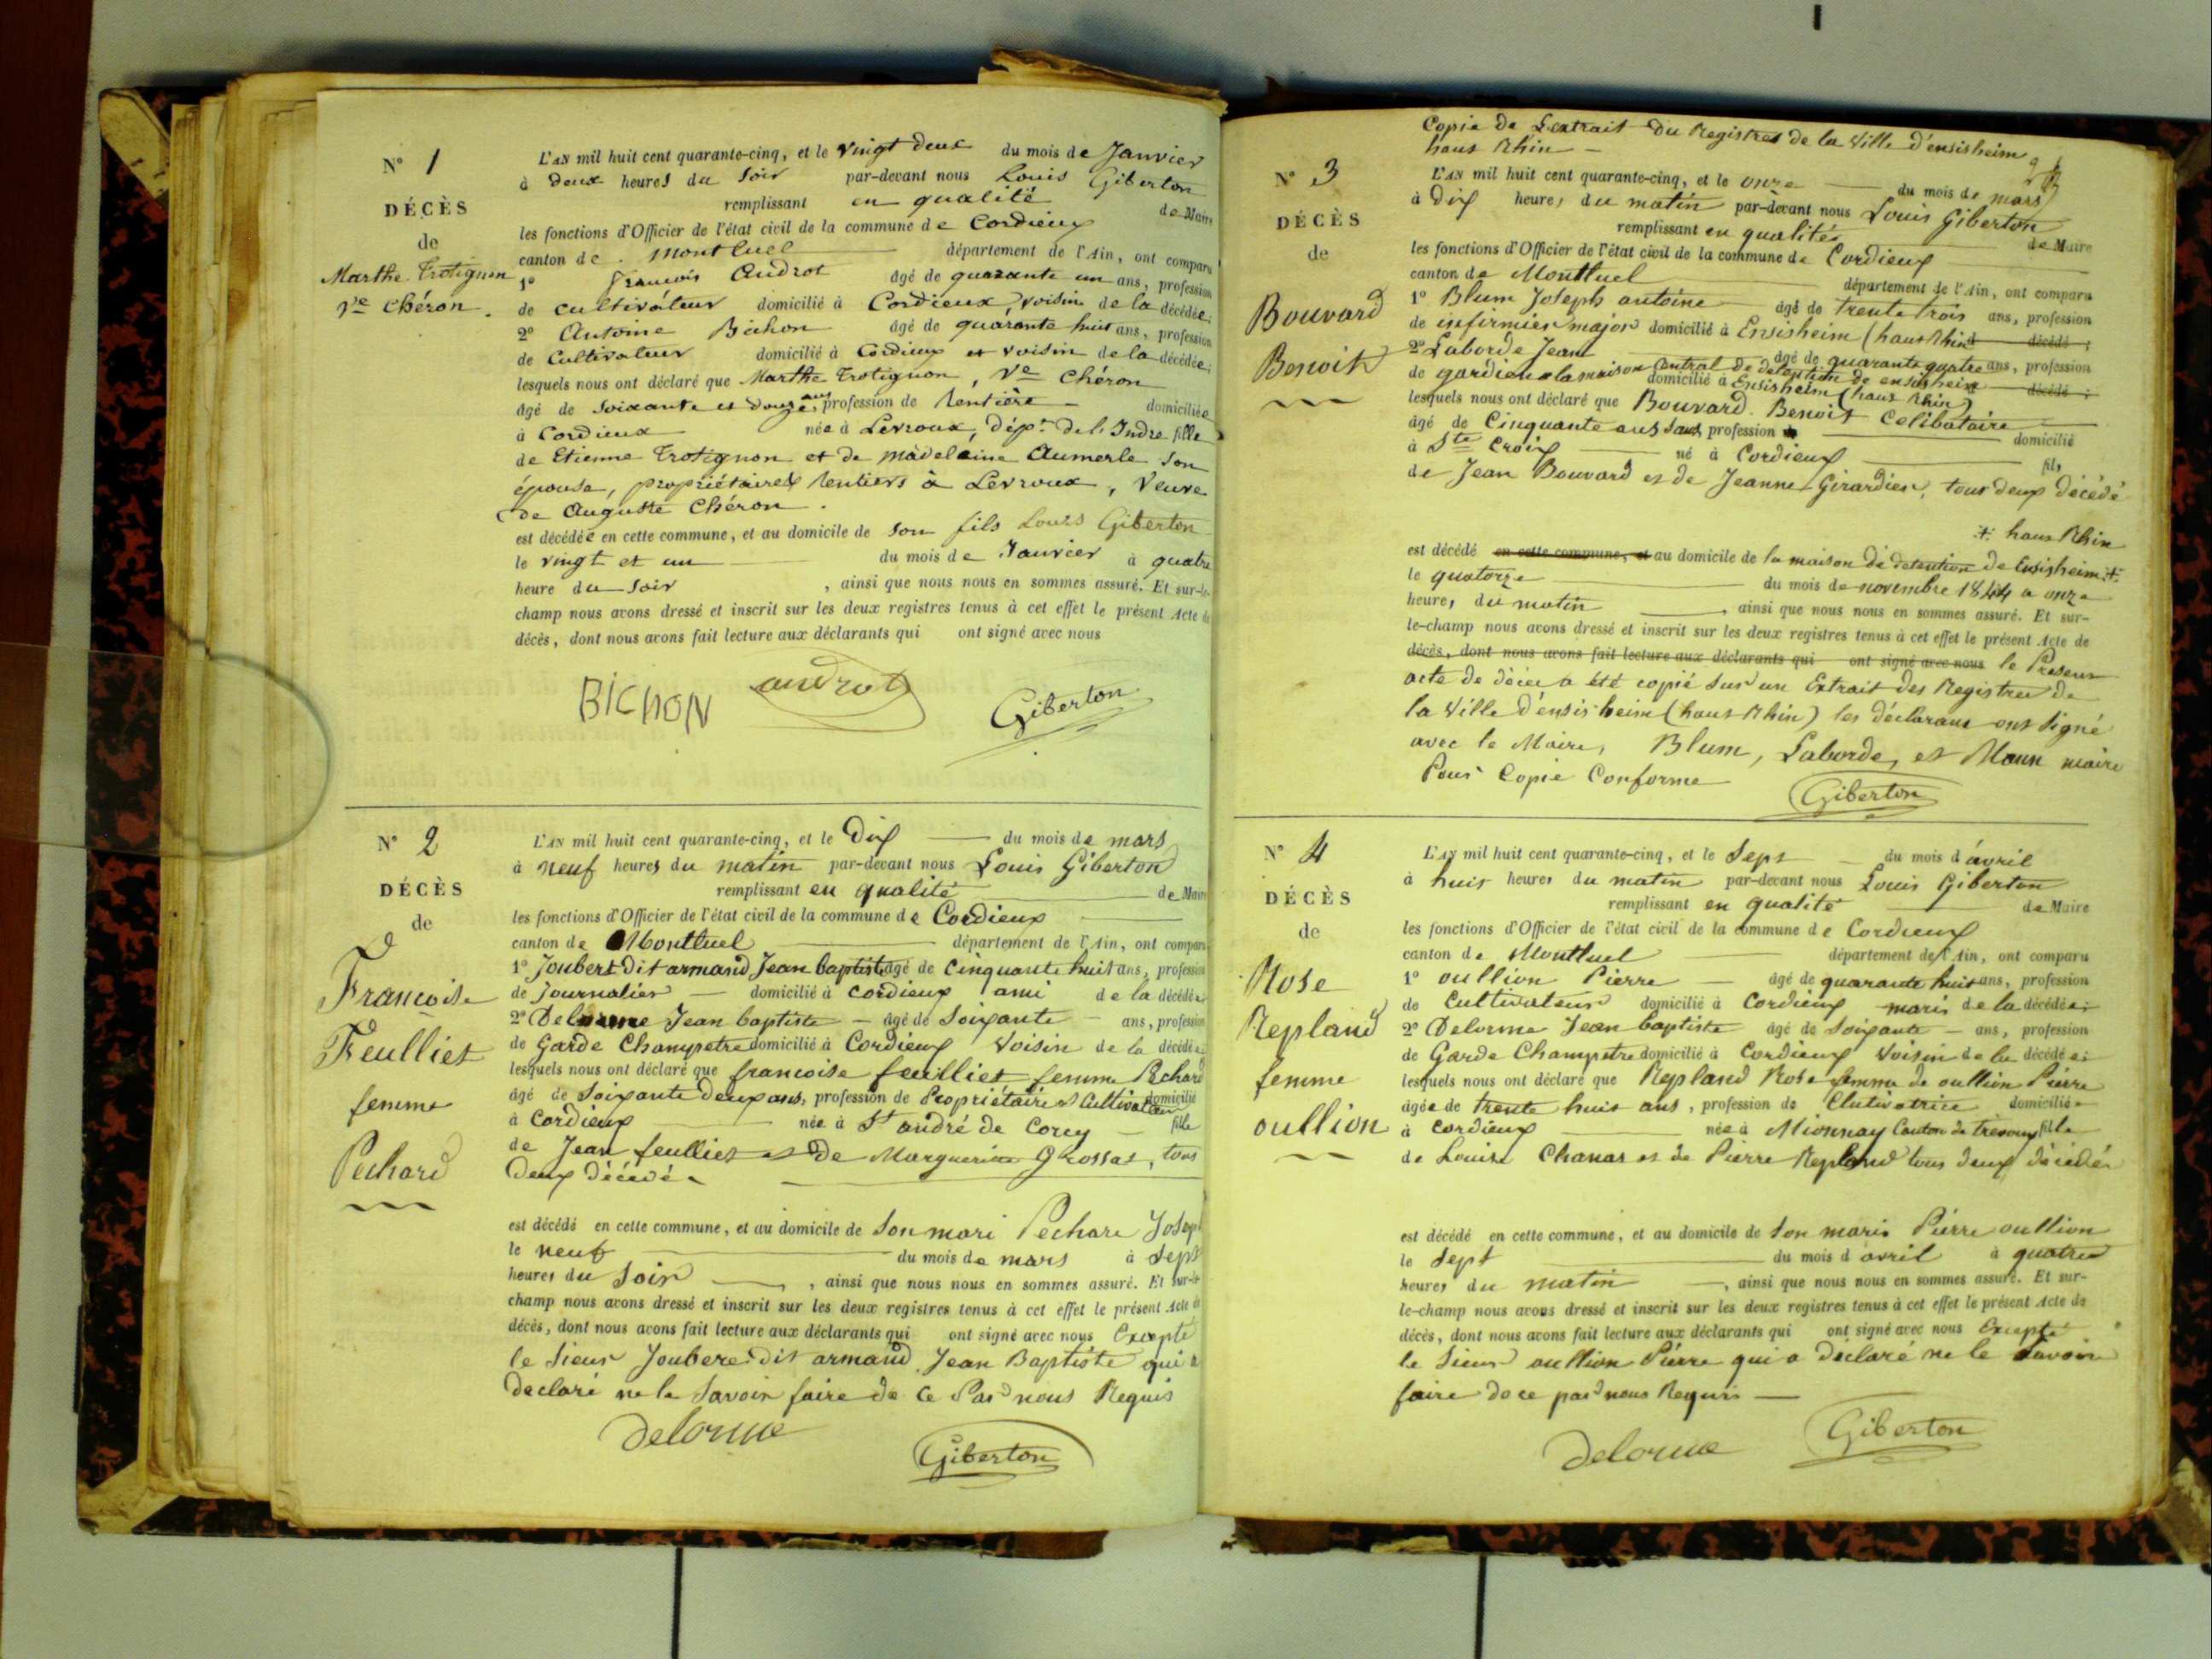 N° 1
DÉCÈS
de
Marthe Trotignon
Ve Chéron.
L'AN mil huit cent quarante-cinq, et le vingt deux du mois de Janvier
à deux heures du soir par-devant nous Louis Giberton
remplissant en qualité de Maire
les fonctions d'Officier de l'état civil de la commune de Cordieux
canton de Montluel département de l'Ain, ont comparu
1° François Audrot âgé de quarante un ans, profession
de cultivateur domicilié à Cordieux, voisin de la décédée;
2° Antoine Bichon âgé de quarante huit ans, profession
de Cultivateur domicilié à Cordieux et voisin de la décédée;
lesquels nous ont déclaré que Marthe Trotignon, Ve Chéron
âgé de soixante et douze ans, profession de Rentière domiciliée
à Cordieux née à Levroux, dépt. de l'Indre fille
de Etienne Trotignon et de madelaine Aumerle son
épouse, propriétaires rentiers à Levroux, veuve
de Auguste Chéron.
est décédée en cette commune, et au domicile de son fils Louis Giberton
le vingt et un du mois de Janvier à quatre
heure du soir, ainsi que nous nous en sommes assuré. Et sur-le-
champ nous avons dressé et inscrit sur les deux registres tenus à cet effet le présent Acte de
décès, dont nous avons fait lecture aux déclarants qui ont signé avec nous
BICHON audrot Giberton
N° 2
DÉCÈS
de
Francoise
Feulliet
femme
Pechard
L'AN mil huit cent quarante-cinq, et le Dix du mois de mars
à neuf heures du matin par-devant nous Louis Giberton
remplissant en qualité de Maire
les fonctions d'Officier de l'état civil de la commune de Cordieux
canton de Montluel département de l'Ain, ont comparu
1° Joubert Dit armand Jean baptiste âgé de Cinquante huit ans, profession
de Journalier domicilié à Cordieux ami de la décédée
2° Delorme Jean baptiste âgé de Soixante ans, profession
de Garde Champetre domicilié à Cordieux Voisin de la décédée
lesquels nous ont déclaré que francoise feulliet femme Pechard
âgé de Soixante deux ans, profession de Propriétaire Cultivateur domicilié
à Cordieux née à St andré de Corcy fille
de Jean feulliet et de Marguerite Grossat, tous
Deux Décédé
est décédé en cette commune, et au domicile de Son mari Pechare Joseph
le neuf du mois de mars à Sept
heures du Soir, ainsi que nous nous en sommes assuré. Et sur-le-
champ nous avons dressé et inscrit sur les deux registres tenus à cet effet le présent Acte de
décès, dont nous avons fait lecture aux déclarants qui ont signé avec nous Excepté
le Sieur Joubere Dit armand Jean Baptiste qui a
Déclaré ne le Savoir faire de Ce Par nous Requis
Delorme Giberton
Copie de L'extrait du Registres de la Ville d'ensisheim
haut Rhin
N° 3
DÉCÈS
de
Bouvard
Benoit
L'AN mil huit cent quarante-cinq, et le onze du mois de mars
à Dix heures du matin par-devant nous Louis Giberton
remplissant en qualité de Maire
les fonctions d'Officier de l'état civil de la commune de Cordieux
canton de Montluel département de l'Ain, ont comparu
1° Blum Joseph antoine âgé de trente trois ans, profession
de infirmier major domicilié à Ensisheim (haut Rhin) décédé;
2° Laborde Jean âgé de quarante quatre ans, profession
de gardien a la maison Central de Detention de ensisheim
domicilié à Ensisheim (haut Rhin) décédé;
lesquels nous ont déclaré que Bouvard Benoit Célibataire
âgé de Cinquante ans sans profession domicilié
à Ste Croix né à Cordieux fils
de Jean Bouvard et de Jeanne Girardier, tous deux décédé
+ haut Rhin
est décédé en cette commune, et au domicile de la maison de detention de Ensisheim +
le quatorze du mois de novembre 1844 a onze
heures du matin, ainsi que nous nous en sommes assuré. Et sur-
le-champ nous avons dressé et inscrit sur les deux registres tenus à cet effet le présent Acte de
décès, dont nous avons fait lecture aux déclarants qui ont signé avec nous le Present
acte de décès a été copié sur un Extrait des Registres de
la Ville d'ensisheim (haut Rhin) les déclarans ont signé
avec le Maire, Blum, Laborde, et Maun maire
Pour Copie Conforme Giberton
N° 4
DÉCÈS
de
Rose
Repland
femme
oullion
L'AN mil huit cent quarante-cinq, et le Sept du mois d'avril
à huit heures du matin par-devant nous Louis Giberton
remplissant en qualité de Maire
les fonctions d'Officier de l'état civil de la commune de Cordieux
canton de Montluel département de l'Ain, ont comparu
1° oullion Pierre âgé de quarante huit ans, profession
de Cultivateur domicilié à Cordieux maris de la décédée;
2° Delorme Jean baptiste âgé de Soixante ans, profession
de Garde Champetre domicilié à Cordieux Voisin de la décédée;
lesquels nous ont déclaré que Repland Rose femme de oullion Pierre
âgée de trente huit ans, profession de Clutivatrice domiciliée
à Cordieux née à Mionnay Canton de Trevoux fille
de Louise Chanas et de Pierre Repland tous deux décédés
est décédé en cette commune, et au domicile de Son maris Pierre oullion
le Sept du mois d avril à quatre
heures du matin, ainsi que nous nous en sommes assuré. Et sur-
le-champ nous avons dressé et inscrit sur les deux registres tenus à cet effet le présent Acte de
décès, dont nous avons fait lecture aux déclarants qui ont signé avec nous Excepté
le Sieur oullion Pierre qui a Déclaré ne le Savoir
faire de ce par nous Requis
Delorme Giberton